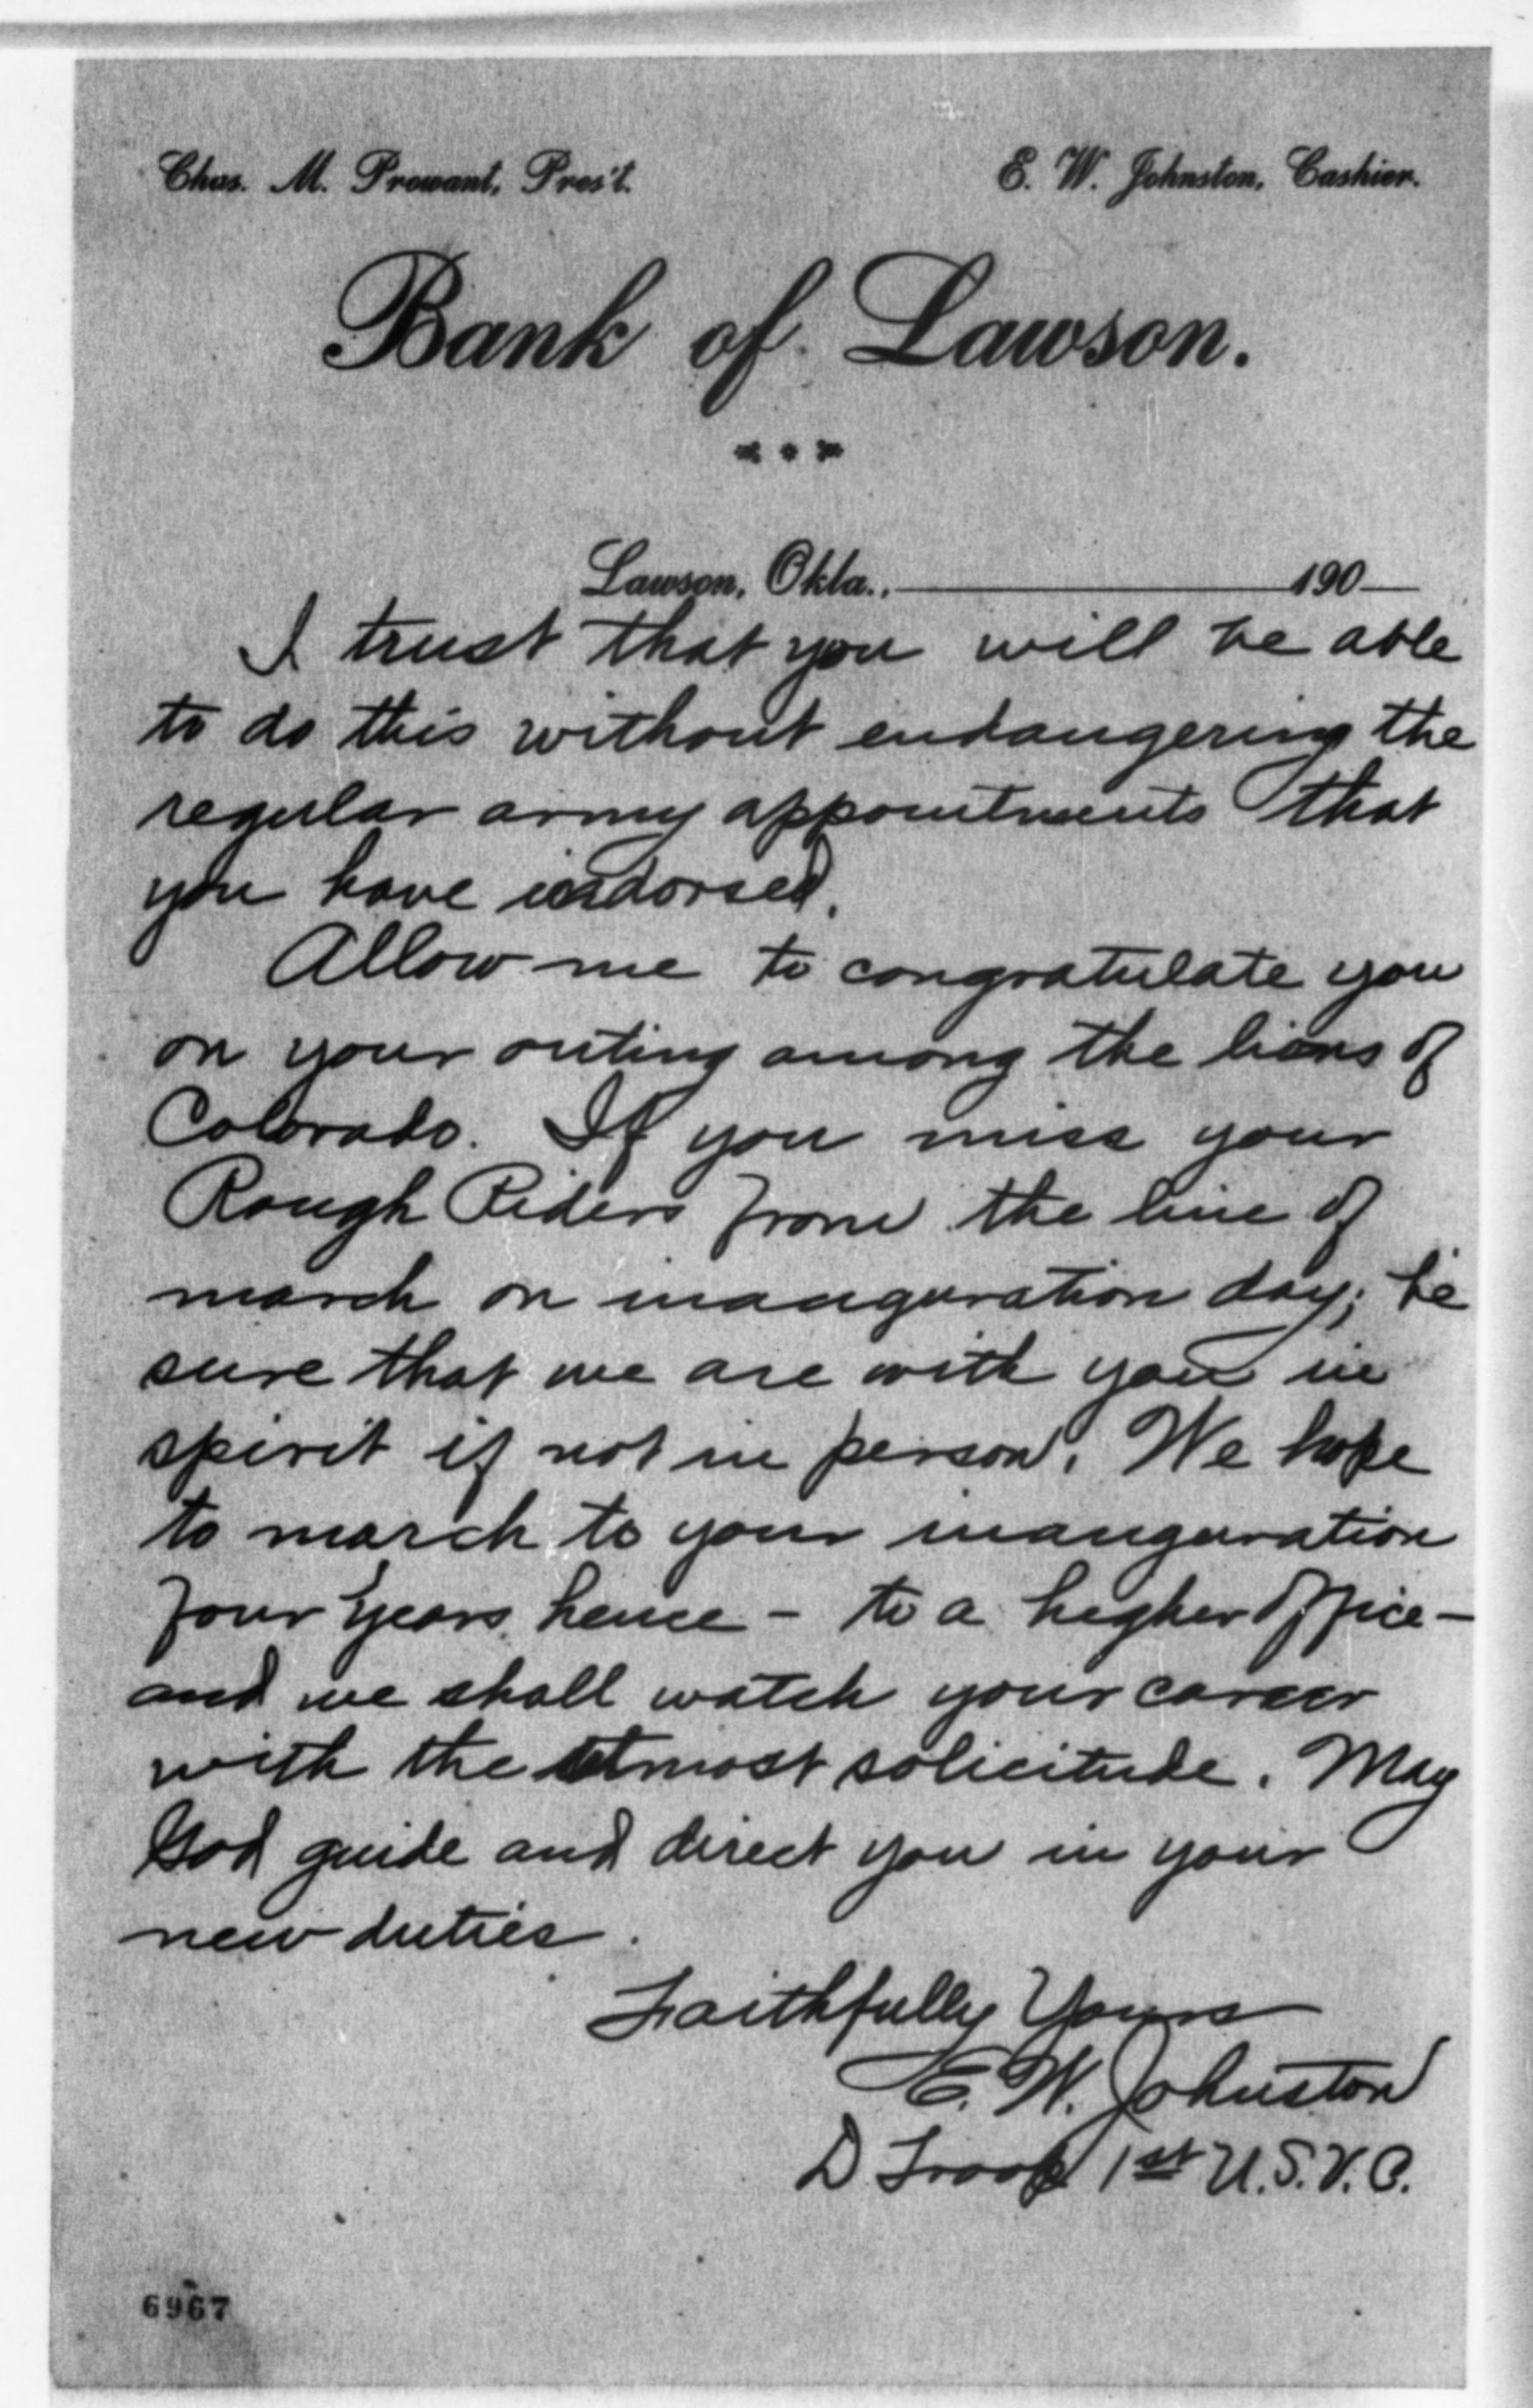 Chas. M. Prowant, Pres't.
E. W. Johnston, Cashier.
Bank of Lawson.
Lawson, Okla., 190
I trust that you will be able
to do this without endangering the
regular army appointments that
you have indorsed.
Allow me to congratulate you
on your outing among the lions of
Colorado. If you miss your
Rough Riders from the line of
march on inauguration day; be
sure that we are with you in
spirit if not in person. We hope
to march to your inauguration
four years hence - to a higher office -
and we shall watch your career
with the utmost solicitude. May
God guide and direct you in your
new duties.
Faithfully Yours
E. W. Johnston
D Troop 1st U.S.V.C.
6967